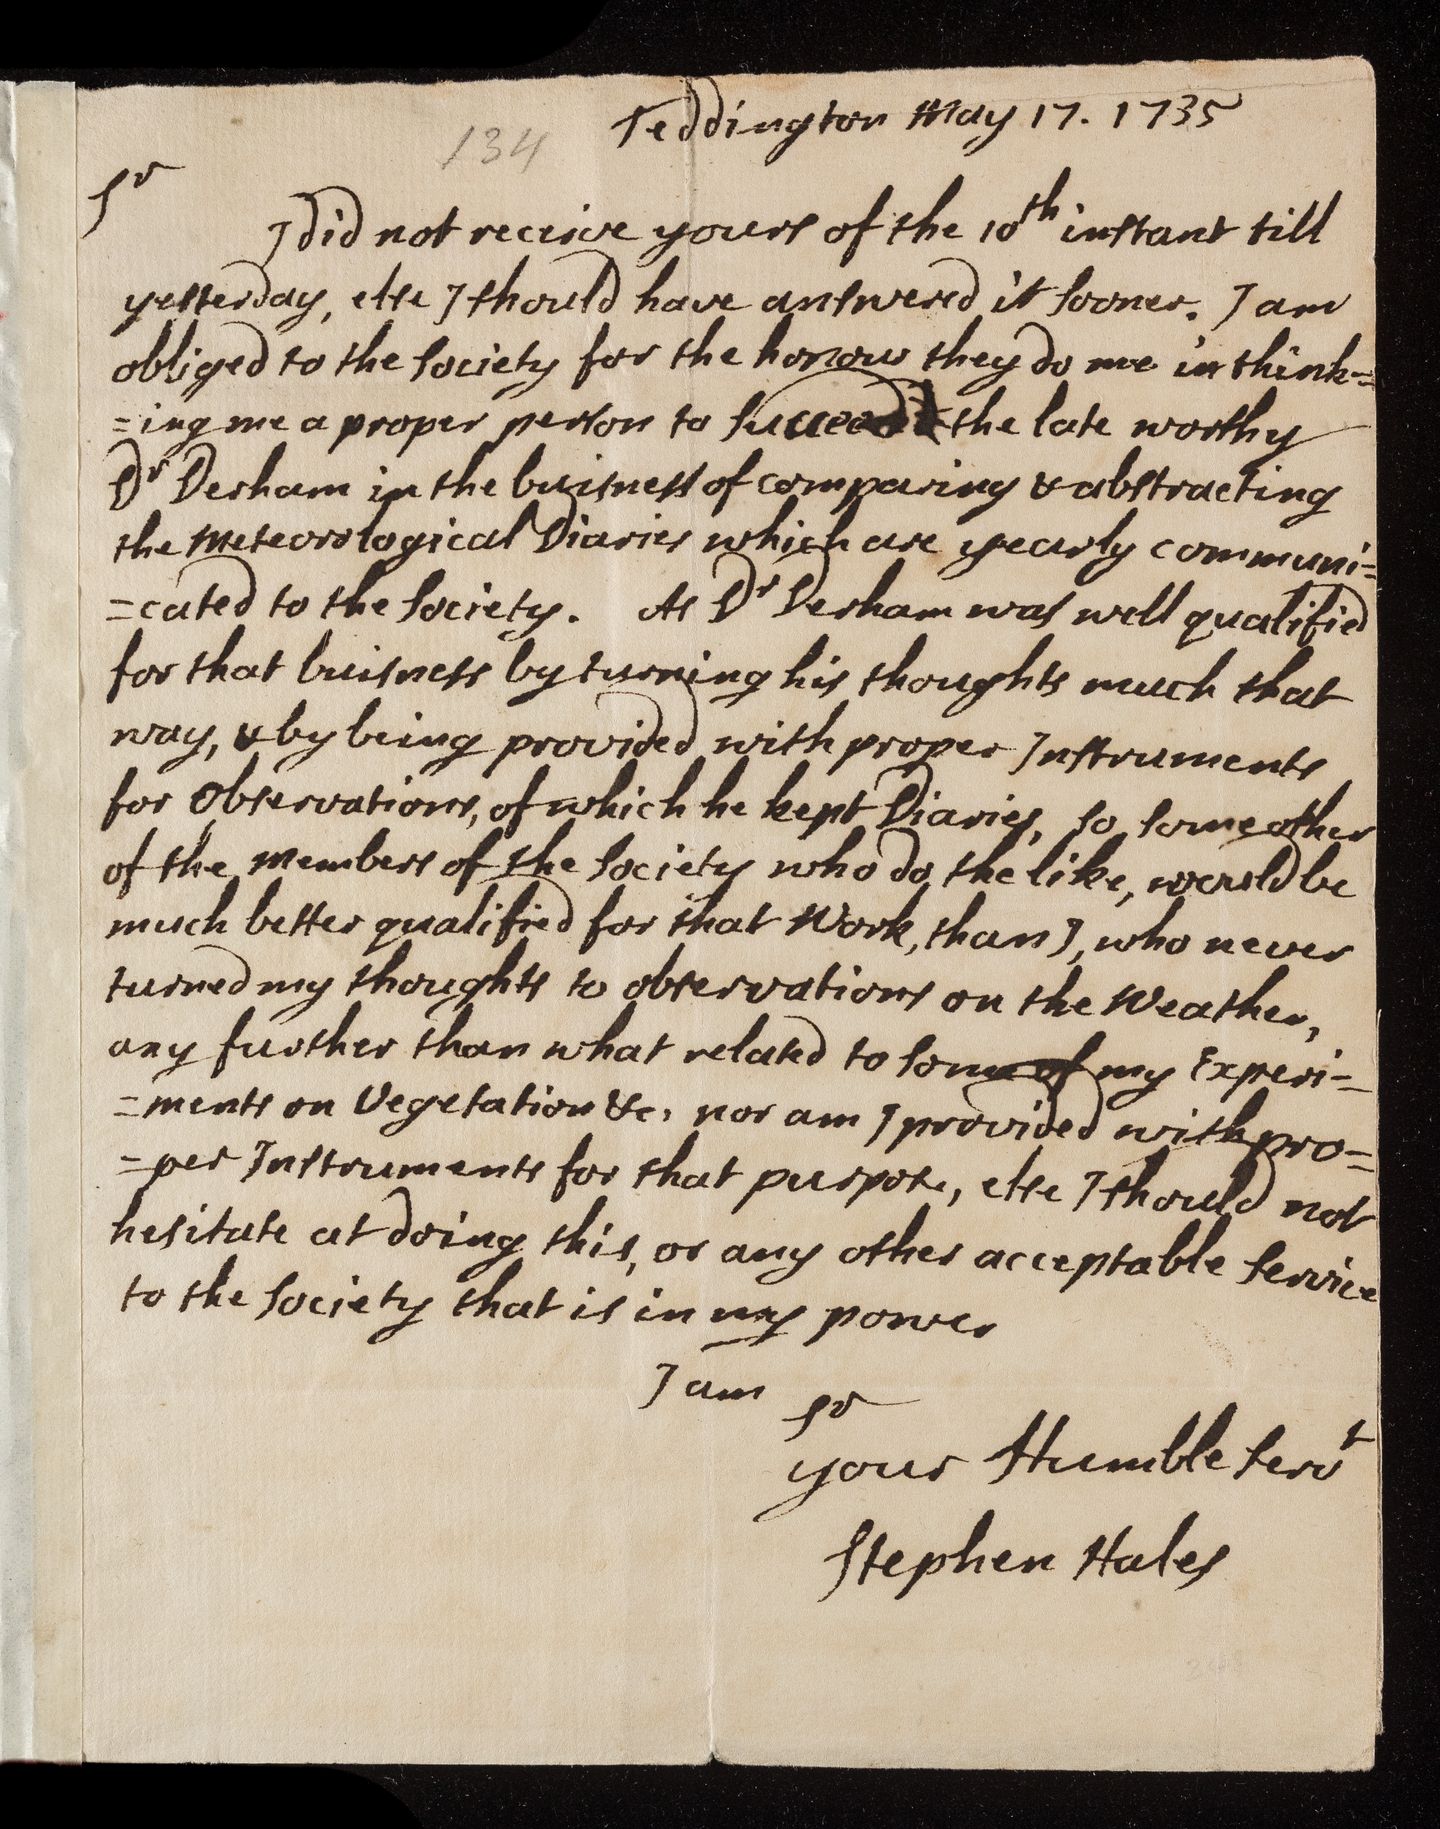 Teddington May 17. 1735
134
Sr
I did not receive yours of the 10th instant till
yesterday, else I should have answered it sooner. I am
obliged to the Society for the honour they do me in think=
=ing me a proper person to succeed the late worthy
Dr Derham in the buisness of comparing & abstracting
the Meteorological Diaries which are yearly communi=
=cated to the Society. As Dr Derham was well qualified
for that buisness by turning his thoughts much that
way, & by being provided with proper Instruments
for Observations, of which he kept Diaries, so some other
of the Members of the Society who do the like, would be
much better qualified for that Work, than I, who never
turned my thoughts to observations on the Weather,
any further than what related to some of my Experi=
=ments on Vegetation &c, nor am I provided with pro=
=per Instruments for that purpose, else I should not
hesitate at doing this, or any other acceptable Service
to the Society that is in my power
I am
Sr
your Humble Servt
Stephen Hales